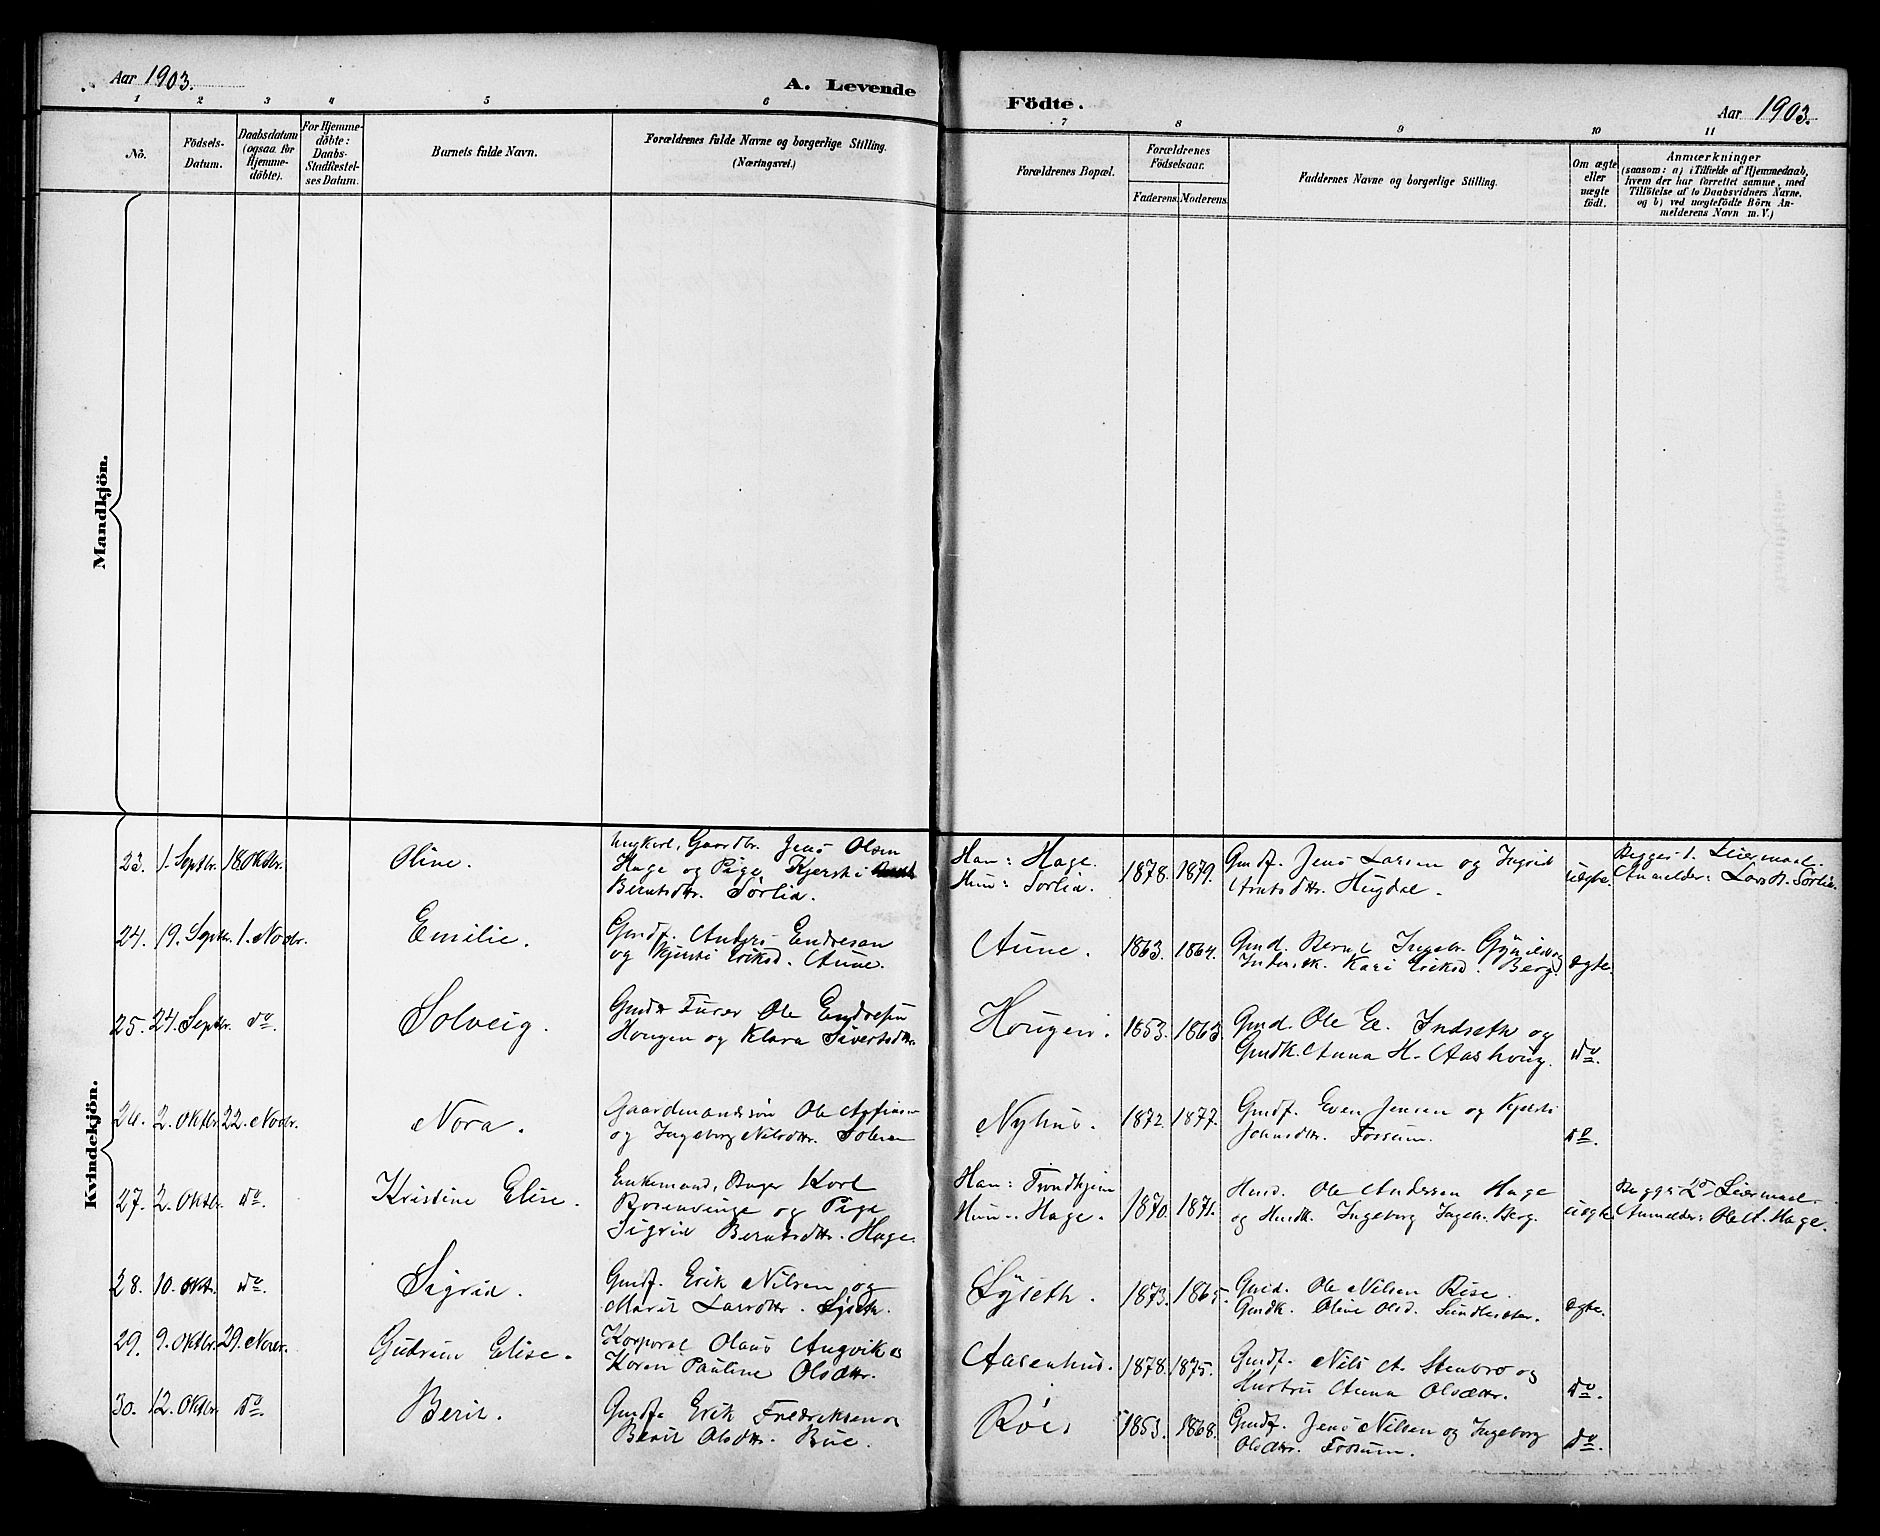 Aar 1903.
A. Levende
Födte.
Aar 1903.
1 2 3 4 5 6 7 8 9 10 11
No.
Födsels-
Datum.
Daabsdatum
(ogsaa for
Hjemme-
döbte).
For Hjemme-
döbte:
Daabs-
Stadfæstel-
ses Datum.
Barnets fulde Navn.
Forældrenes fulde Navne og borgerlige Stilling.
(Næringsvei.)
Forældrenes Bopæl.
Forældrenes
Födselsaar.
Faderens. Moderens.
Faddernes Navne og borgerlige Stilling.
Om ægte
eller
uægte
födt.
Anmærkninger
(saasom: a) i Tilfælde af Hjemmedaab,
hvem der har forrettet samme, med
Tilföielse af to Daabsvidners Navne.
og b) ved uægtefödte Börn An-
melderens Navn m. V.)
Mandkjön.
Kvindekjön.
23. 1. Septbr. 18 Oktbr. Oline.
Ungkarl, Gaardbr. Jens Olsen
Hage og Pige Kjersti
Berntsdtr. Sørlia.
Han: Hage.
Hun: Sørlia.
1878. 1879.
Gmdf. Jens Larsen og Ingrid
Arntsdtr. Hugdal.
uægte.
Begges 1. Leiermaal.
Anmelder: Lars B. Sørlia.
24. 19. Septbr. 1. Novbr. Emilie.
Gmdf. Anders Endresen
og Kjersti Eriksd. Aune.
Aune. 1863. 1864.
Gmd. Bernt Ingebr.
Kari Eriksd. Berg.
ægte.
25. 24. Septbr. do. Solveig.
Ole Endresen
Hougen og Klara Sivertsdtr.
Hougen. 1853. 1863.
Gmd. Ole E. Indseth og
Gmdk. Anna H. Aashoug.
do.
26. 2. Oktbr. 22. Novbr. Nora.
Gaardmandssøn Ole
og Ingeborg Nilsdtr. Solem
Nyhus. 1872. 1877.
Gmdf. Even Jensen og Kjersti
Johnsdtr. Fossum.
do.
27. 2. Oktbr. do. Kristine Elise.
Enkemand, Bager Karl
Rosenvinge og Pige
Sigrid Berntsdtr. Hage.
Han: Trondhjem
Hun: Hage.
1870. 1871.
Husd. Ole Andersen Hage
og Husdk. Ingeborg Ingebr. Berg.
uægte.
Begges 2det Leiermaal.
Anmelder: Ole A. Hage.
28. 10. Oktbr. do. Sigrid.
Gmdf. Erik Nilsen og
Marit Larsdtr. Lyseth.
Lyseth. 1873. 1865.
Gmd. Ole Nilsen Rise.
Gmdk. Oline Olsd. Sundleseter.
ægte.
29. 9. Oktbr. 29. Novbr. Gudrun Elise.
Korporal Olaus Angvik og
Karen Pauline Olsdtr.
Aasenhus. 1878. 1875.
Gmdf. Nils A. Stenbro og
Hustru Anna Olsdtr.
do.
30. 12. Oktbr. do. Berit.
Gmdf. Erik Fredriksen og
Berit Olsdtr. Bue.
1853. 1868.
Gmdf. Jens Nilsen og Ingeborg
Olsdtr. Fossum.
do.